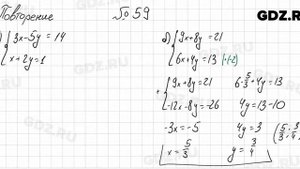 GDZ.RU
Повторение
№ 59
) { 3x-5y=14
x+2y=1
б) { 9x+8y=21
6x+4y=13 |·(-2)
{ 9x+8y=21
-12x-8y=-26
-3x=-5
x=5/3
6·5/3+4y=13
4y=13-10
4y=3
y=3/4
(5/3; 3/4)